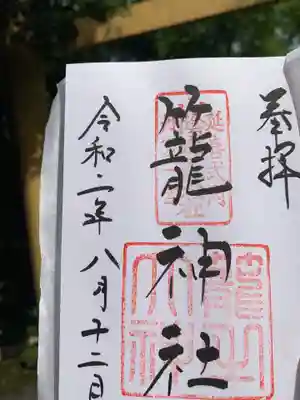 奉拝
延喜式内
籠神社
令和二年八月十二日